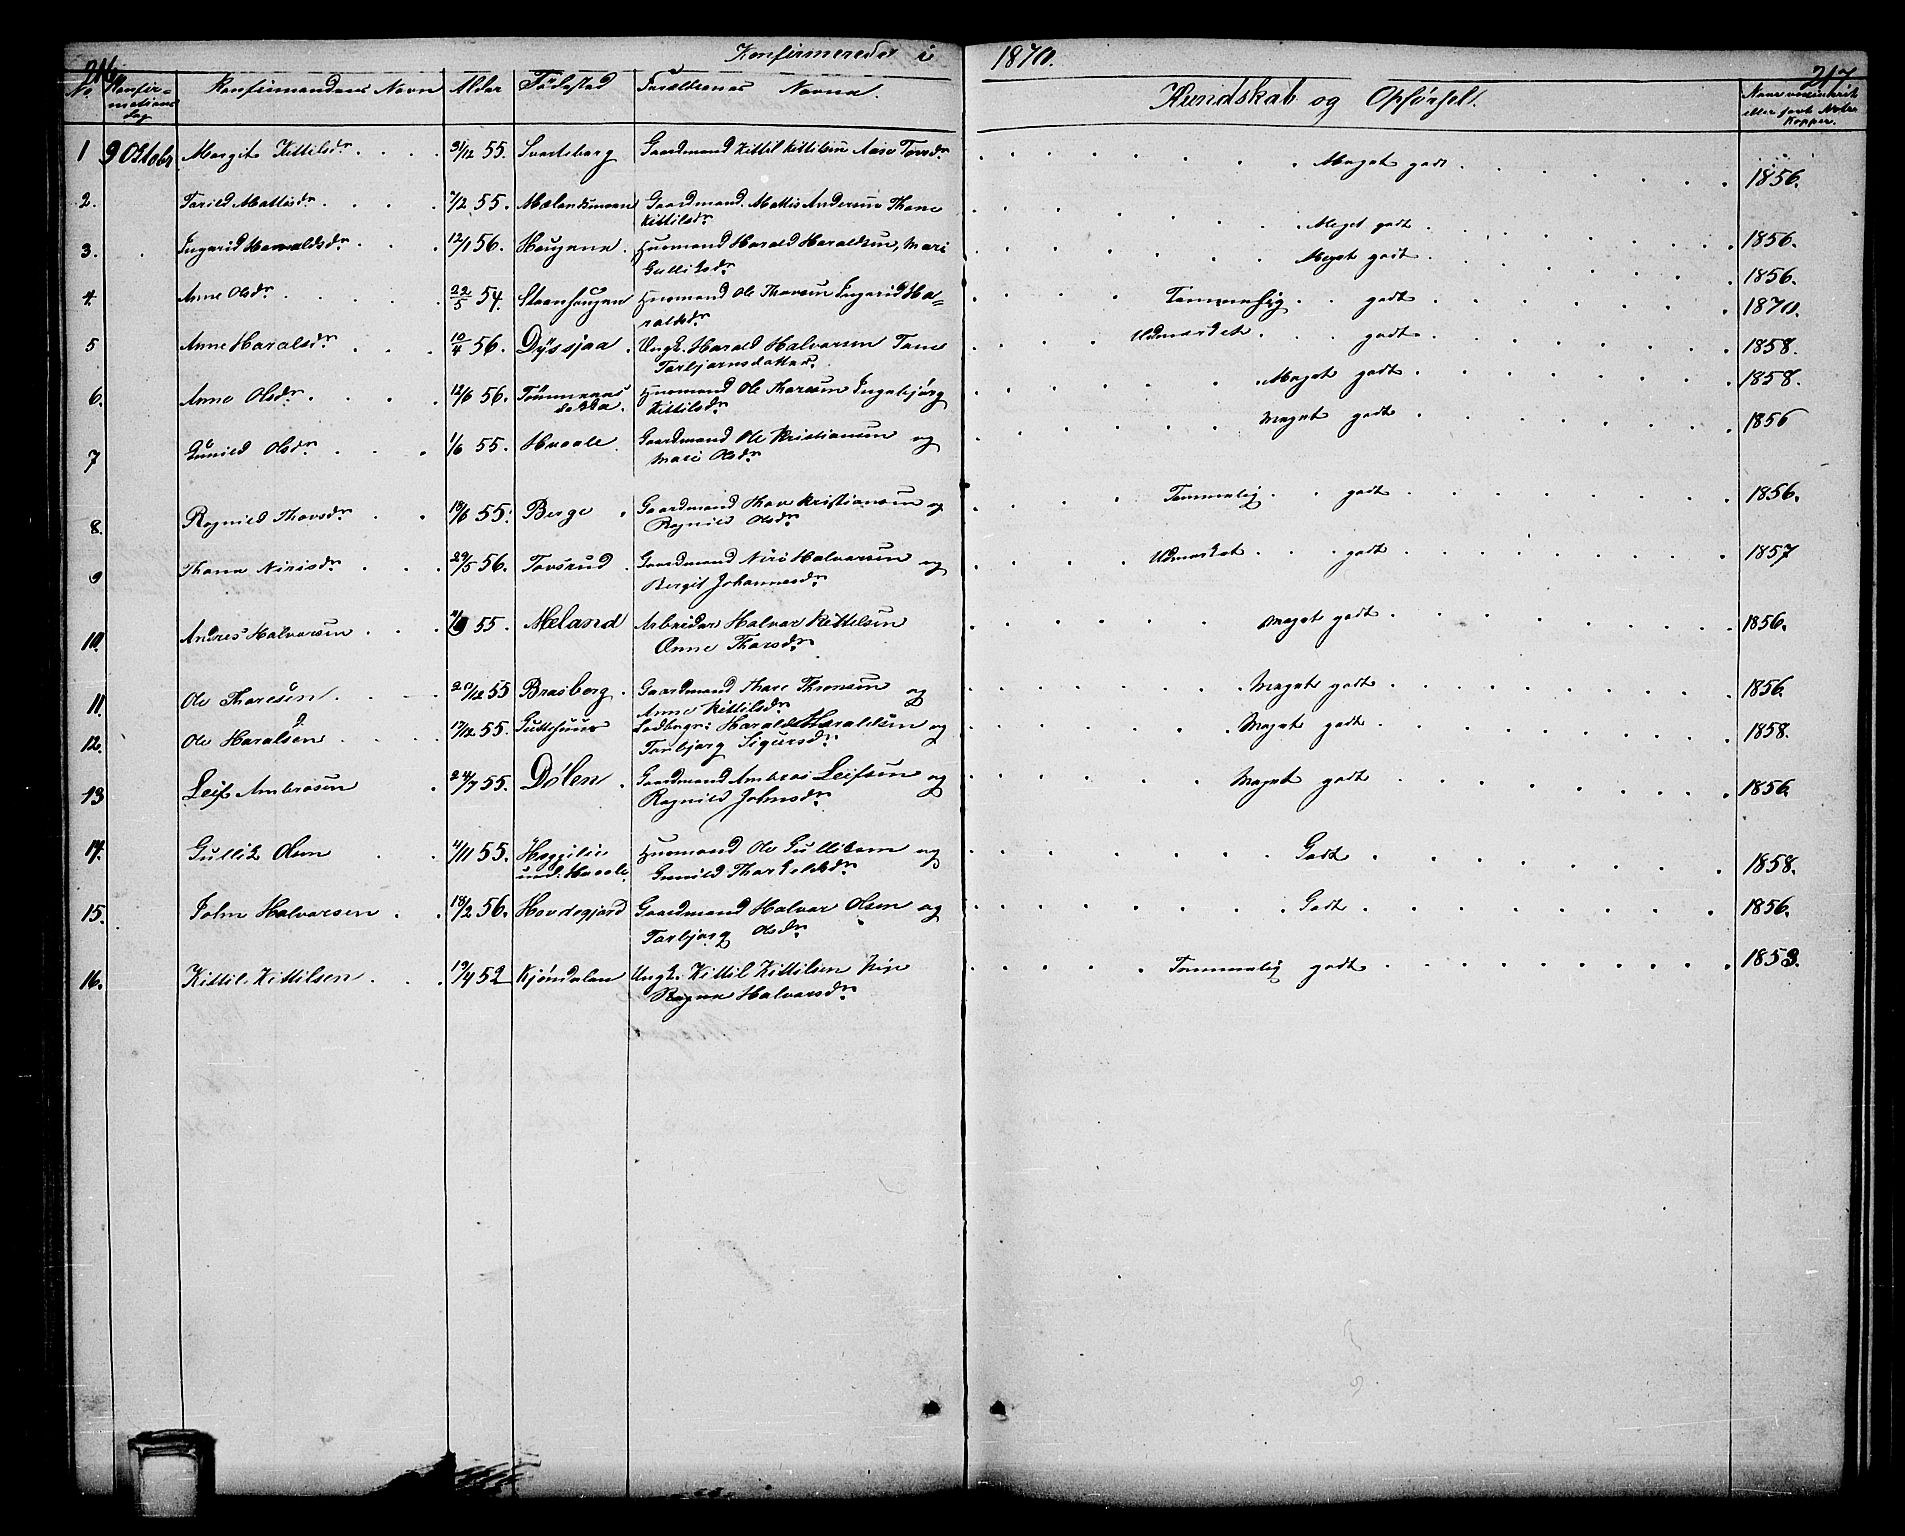 Konfirmerede i 1870.
216 217
No. Konfirmations dag Konfirmandens Navn Alder Födested Forældrenes Navne. Kundskab og Opförsel. Naar vaccineret eller havt Natur Kopper.
1 9 Oktobr Margit Kittilsdr. 31/12 55. Svarteberg Gaardmand Kittil Kittilsen Aase Torsdr. Meget godt 1856.
2. Torild Mattisdr. 7/12 55. Mælandsmoen Gaardmand Mattis Andersen Thone
Kittilsdr. Meget godt 1856.
3. Ingerid Haraldsdr. 12/1 56. Haugene Husmand Harald Haraldsen, Mari
Gulliksdr. Meget godt 1856.
4. Anne Olsdr. 22/5 54. Steenhaugen Husmand Ole Thorsen Ingerid Ha=
raldsdr. Temmelig godt 1870.
5 Anne Haralsdr. 10/4 56. Dyssjaa Ungk. Harald Halvorsen Tone
Torbjørnsdatter Udmerket godt 1858.
6. Anne Olsdr. 12/6 56. Husmand Ole Thoresen Ingebjørg
Kittilsdr. Meget godt 1858.
7 Gunild Olsdr. 1/6 55. Hvaale Gaardmand Ole Kristiansen og
Mari Olsdr. Meget godt 1856
8. Ragnild Thovsdr. 18/6 55. Berge Gaardmand Thov Kristiansen og
Ragnild Olsdr. Temmelig godt 1856.
9 Thone Nirisdr. 29/5 56. Tovsrud Gaardmand Niri Halvorsen og
Bergit Johannesdr. Udmerket godt 1857
10. Andres Halvorsen 55. Meland Arbeider Halvor Kittelsen
Anne Thorsdr. Meget godt 1856.
11. Ole Thoresen 20/12 55 Brasberg Gaardmand Thore Thronsen og
Anne Kittilsdr. Meget godt 1856.
12. Ole Haralsen 17/12 55. Harald Haraldsen og
Torbjørg Sigursdr. Meget godt 1858.
13 Leif Ambrosen 24/7 55. Dølen Gaardmand Ambros Leifsen og
Ragnild Johnsdr. Meget godt 1856.
14. Gullik Olsen 4/11 55. Haggilie
und. Hvaale Husmand Ole Gulliksen og
Gunild Thorkelsdr. Godt 1858.
15. John Halvorsen 18/2 56. Hovdegjerd Gaardmand Halvor Olsen og
Torbjørg Olsdr. Godt 1856.
16. Kittil Kittilsen 19/4 52 Kjøndalen Ungk. Kittil Kittilsen Pige
Ragne Halvorsdr. Temmelig godt 1853.